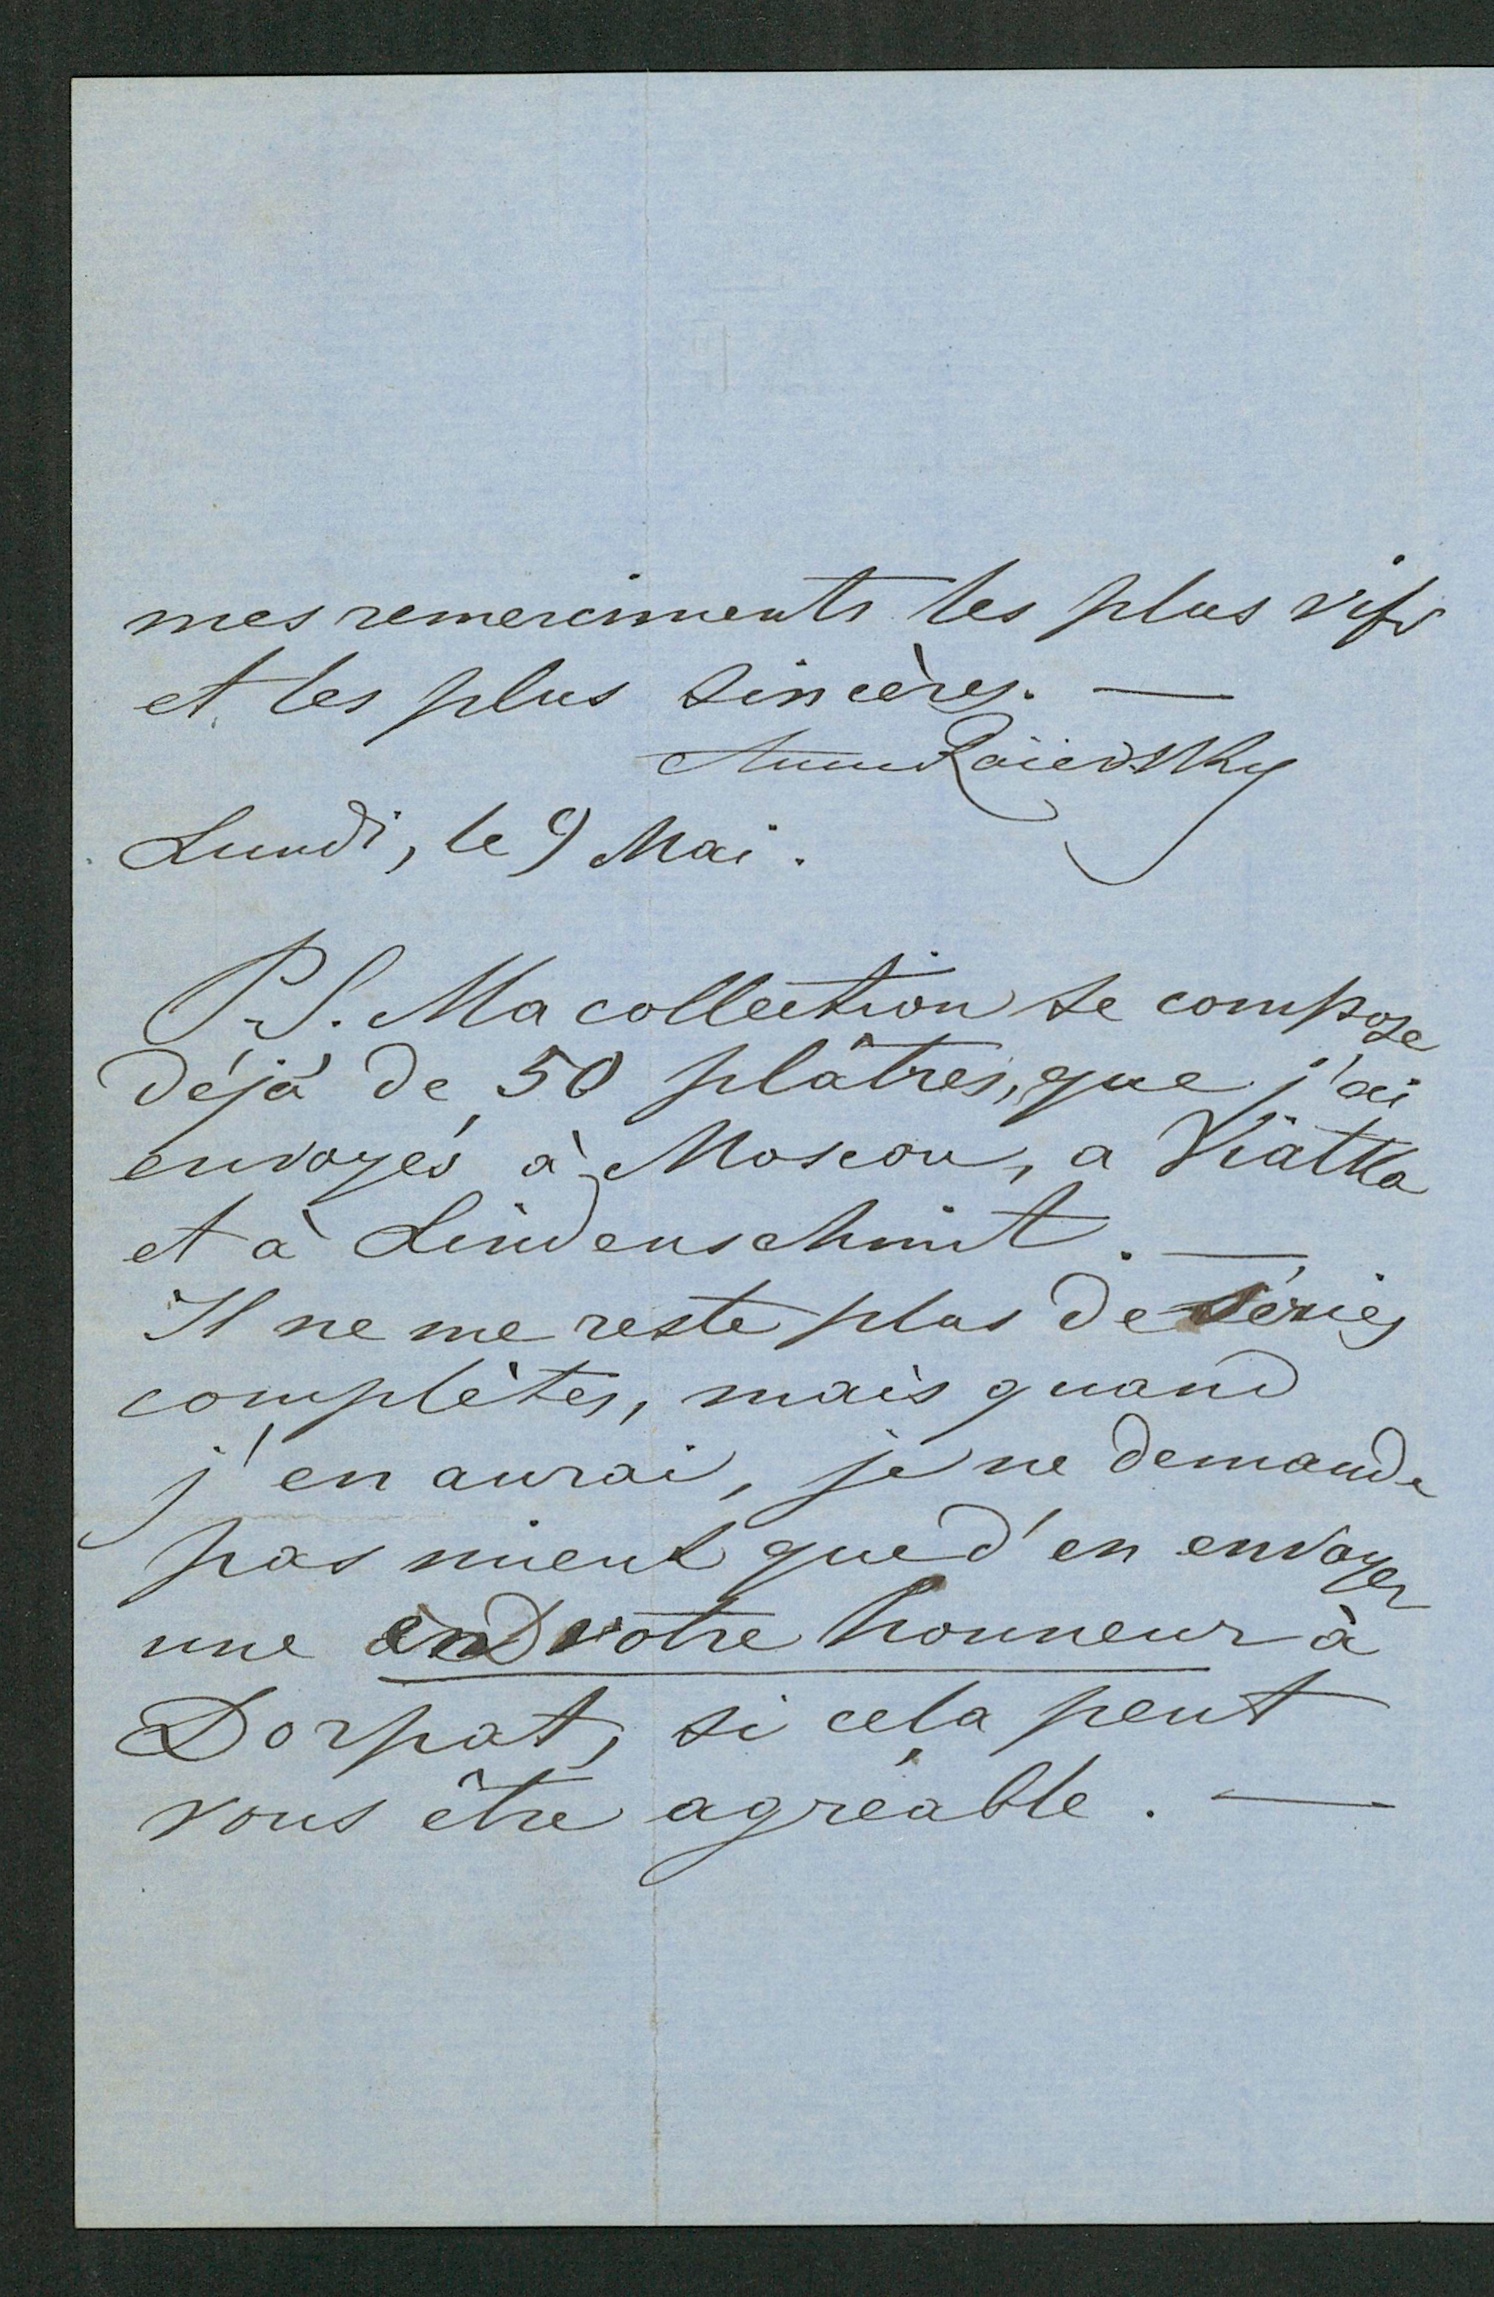 mes remerciments les plus vifs
et les plus sincères. —
Anne Raïevsky
Lundi, le 9 Mai.
P.S. Ma collection se compose
déjà de 50 plâtres, que j'ai
envoyés à Moscou, a Viatka
et à Lindenschmit. —
Il ne me reste plus de séries
complètes, mais quand
j'en aurai, je ne demande
pas mieux que d'en envoyer
une en votre honneur à
Dorpat, si cela peut
vous être agréable. —